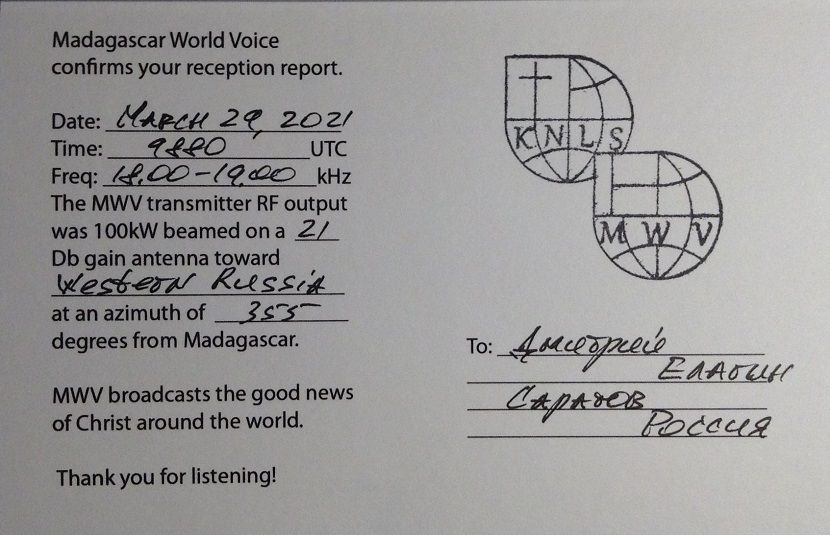 Madagascar World Voice
confirms your reception report.
Date: MARCH 29, 2021
Time: 9880 UTC
Freq: 18.00-19.00 kHz
The MWV transmitter RF output
was 100kW beamed on a 21
Db gain antenna toward
Western Russia
at an azimuth of 355
degrees from Madagascar.
MWV broadcasts the good news
of Christ around the world.
Thank you for listening!
KNLS
MWV
To: Дмитрий
Елагин
Саратов
Россия